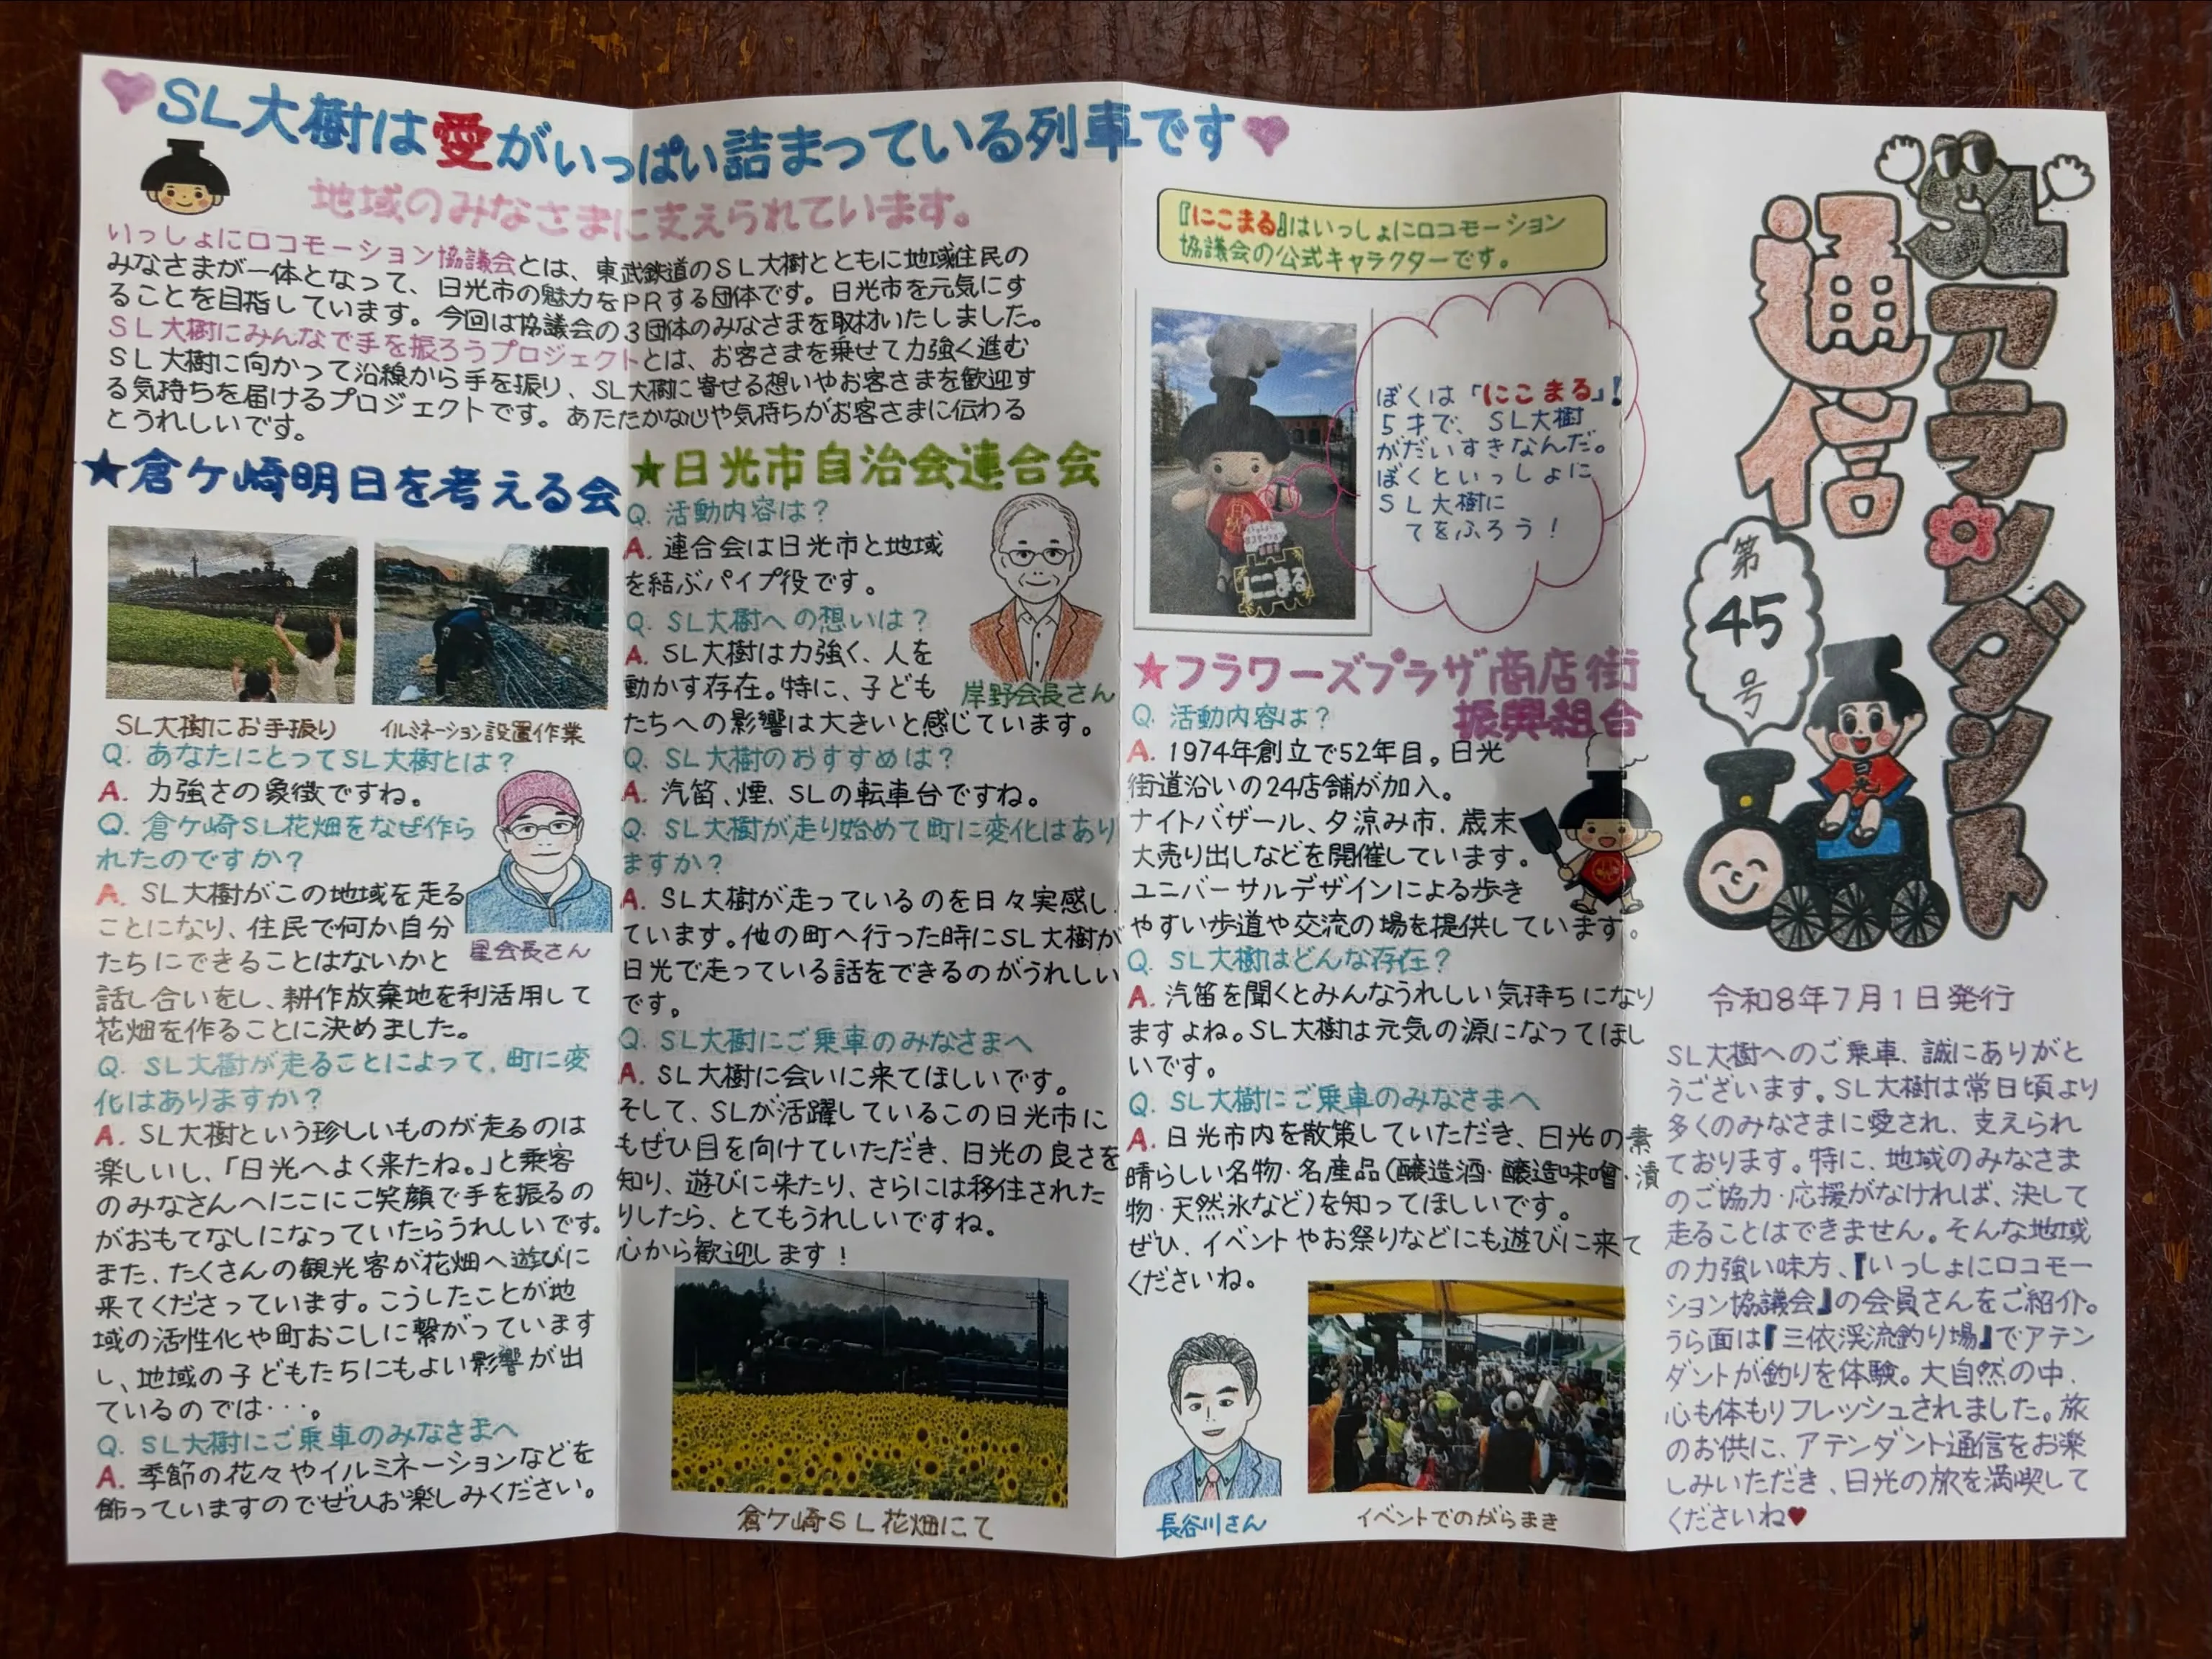 SL大樹は愛がいっぱい詰まっている列車です
地域のみなさまに支えられています。
いっしょにロコモーション協議会とは、東武鉄道のSL大樹とともに地域住民の
みなさまが一体となって、日光市の魅力をPRする団体です。日光市を元気にす
ることを目指しています。今回は協議会の3団体のみなさまを取材いたしました。
SL大樹にみんなで手を振ろうプロジェクトとは、お客さまを乗せて力強く進む
SL大樹に向かって沿線から手を振り、SL大樹に寄せる想いやお客さまを歓迎す
る気持ちを届けるプロジェクトです。あたたかな心や気持ちがお客さまに伝わる
とうれしいです。
★倉ケ崎明日を考える会
SL大樹にお手振り
イルミネーション設置作業
Q. あなたにとってSL大樹とは?
A. 力強さの象徴ですね。
Q. 倉ケ崎SL花畑をなぜ作ら
れたのですか?
A. SL大樹がこの地域を走る
ことになり、住民で何か自分
たちにできることはないかと
話し合いをし、耕作放棄地を利活用して
花畑を作ることに決めました。
星会長さん
Q. SL大樹が走ることによって、町に変
化はありますか?
A. SL大樹という珍しいものが走るのは
楽しいし、「日光へよく来たね。」と乗客
のみなさんへにこにこ笑顔で手を振るの
がおもてなしになっていたらうれしいです。
また、たくさんの観光客が花畑へ遊びに
来てくださっています。こうしたことが地
域の活性化や町おこしに繋がっています
し、地域の子どもたちにもよい影響が出
ているのでは・・・。
Q. SL大樹にご乗車のみなさまへ
A. 季節の花々やイルミネーションなどを
飾っていますのでぜひお楽しみください。
★日光市自治会連合会
Q. 活動内容は?
A. 連合会は日光市と地域
を結ぶパイプ役です。
Q. SL大樹への想いは?
A. SL大樹は力強く、人を
動かす存在。特に、子ども
たちへの影響は大きいと感じています。
岸野会長さん
Q. SL大樹のおすすめは?
A. 汽笛、煙、SLの転車台ですね。
Q. SL大樹が走り始めて町に変化はあり
ますか?
A. SL大樹が走っているのを日々実感し
ています。他の町へ行った時にSL大樹が
日光で走っている話をできるのがうれしい
です。
Q. SL大樹にご乗車のみなさまへ
A. SL大樹に会いに来てほしいです。
そして、SLが活躍しているこの日光市に
もぜひ目を向けていただき、日光の良さを
知り、遊びに来たり、さらには移住された
りしたら、とてもうれしいですね。
心から歓迎します!
倉ケ崎SL花畑にて
『にこまる』はいっしょにロコモーション
協議会の公式キャラクターです。
にこまる
ぼくは「にこまる」!
5才で、SL大樹
がだいすきなんだ。
ぼくといっしょに
SL大樹に
てをふろう!
★フラワーズプラザ商店街
振興組合
Q. 活動内容は?
A. 1974年創立で52年目。日光
街道沿いの24店舗が加入。
ナイトバザール、夕涼み市、歳末
大売り出しなどを開催しています。
ユニバーサルデザインによる歩き
やすい歩道や交流の場を提供しています。
Q. SL大樹はどんな存在?
A. 汽笛を聞くとみんなうれしい気持ちになり
ますよね。SL大樹は元気の源になってほし
いです。
Q. SL大樹にご乗車のみなさまへ
A. 日光市内を散策していただき、日光の素
晴らしい名物・名産品(醸造酒・醸造味噌・漬
物・天然氷など)を知ってほしいです。
ぜひ、イベントやお祭りなどにも遊びに来て
くださいね。
長谷川さん
イベントでのがらまき
SLアテンダント
通信
第
45
号
日光
令和8年7月1日発行
SL大樹へのご乗車、誠にありがと
うございます。SL大樹は常日頃より
多くのみなさまに愛され、支えられ
ております。特に、地域のみなさま
のご協力・応援がなければ、決して
走ることはできません。そんな地域
の力強い味方、『いっしょにロコモー
ション協議会』の会員さんをご紹介。
うら面は『三依渓流釣り場』でアテン
ダントが釣りを体験。大自然の中、
心も体もリフレッシュされました。旅
のお供に、アテンダント通信をお楽
しみいただき、日光の旅を満喫して
くださいね♥